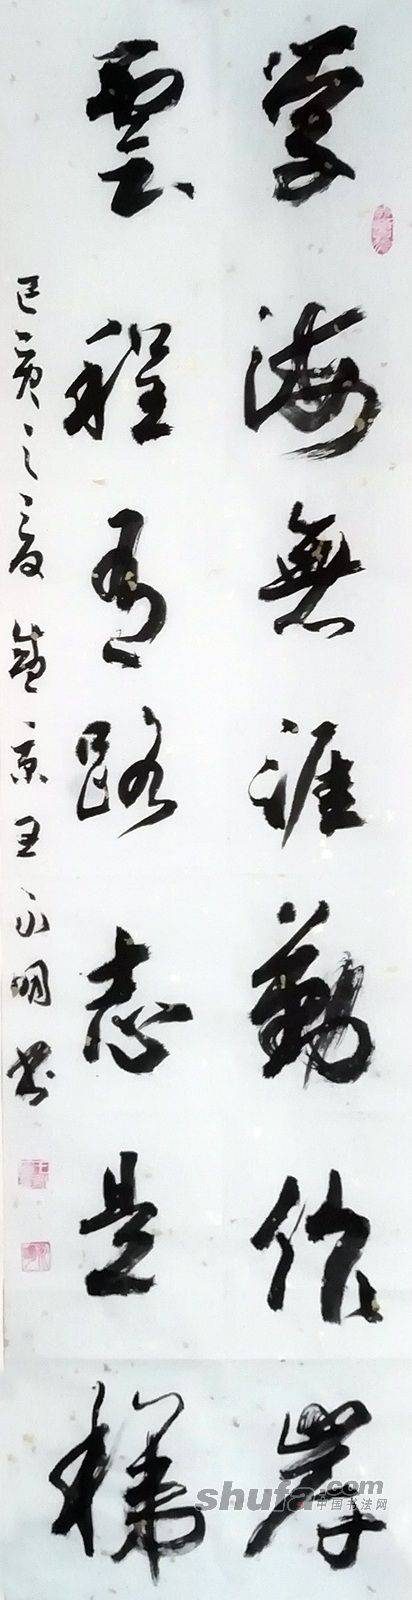 学海無涯勤作岸
雲程有路志是梯
己亥之夏盛京王永明书
shufa.com
中国书法网